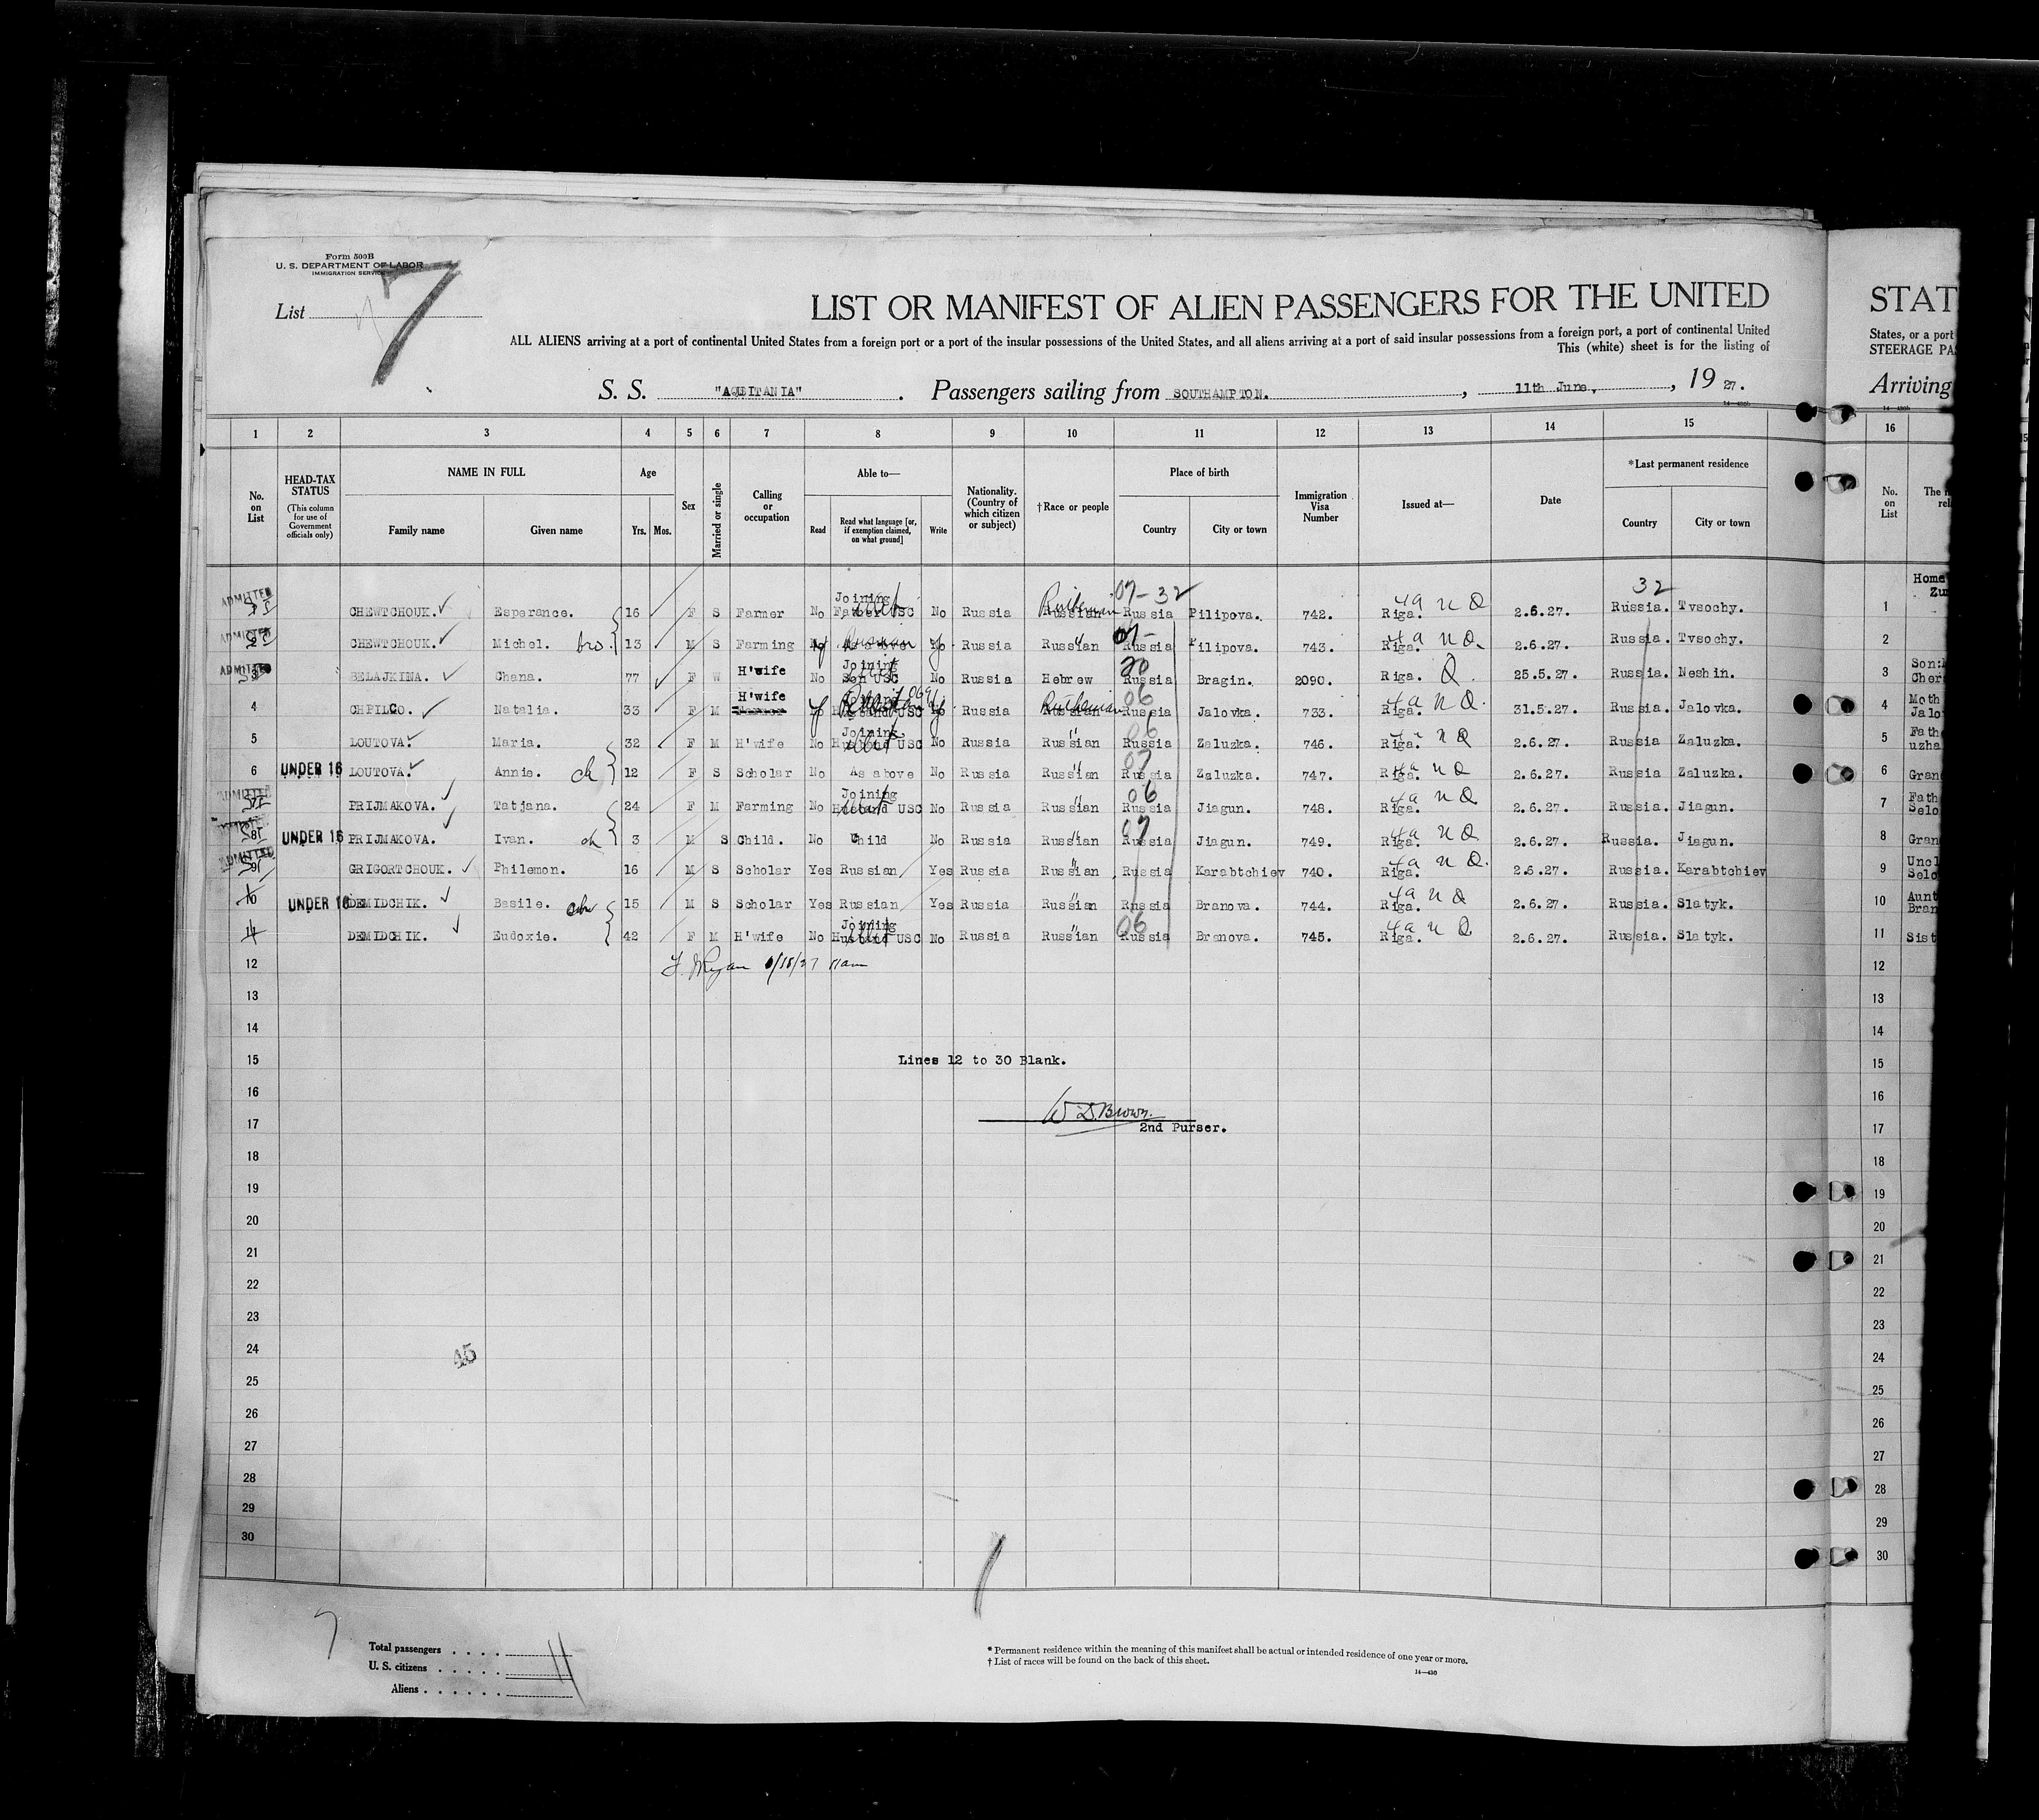 Form 500B
U. S. DEPARTMENT OF LABOR
IMMIGRATION SERVICE
List 7
LIST OR MANIFEST OF ALIEN PASSENGERS FOR THE UNITED
STAT
ALL ALIENS arriving at a port of continental United States from a foreign port or a port of the insular possessions of the United States, and all aliens arriving at a port of said insular possessions from a foreign port, a port of continental United
States, or a port
This (white) sheet is for the listing of
STEERAGE PA
S. S. "AQUITANIA". Passengers sailing from SOUTHAMPTON., 11th June, , 19 27.
Arriving
1 2 3 4 5 6 7 8 9 10 11 12 13 14 15 16
No. on List
HEAD-TAX STATUS
(This column for use of Government officials only)
NAME IN FULL
Family name Given name
Age
Yrs. Mos.
Sex
Married or single
Calling or occupation
Able to—
Read
Read what language [or, if exemption claimed, on what ground]
Write
Nationality. (Country of which citizen or subject)
†Race or people
Place of birth
Country City or town
Immigration Visa Number
Issued at—
Date
*Last permanent residence
Country City or town
No. on List
07-32 32
ADMITTED 1 CHEWTCHOUK. Esperance. 16 F S Farmer No Joining Father USC No Russia Russian Ruthenian Russia Filipova. 742. Riga. 4a n Q 2.6.27. Russia. Tvsochy. 1
ADMITTED 2 CHEWTCHOUK. Michel. bro. 13 M S Farming Russian Russia Russian " Russia Filipova. 743. Riga. 4a n Q. 2.6.27. Russia. Tvsochy. 2
ADMITTED 3 BELAJKINA. Chana. 77 F W H'wife No Joining Son USC No Russia Hebrew Russia Bragin. 2090. Riga. Q. 25.5.27. Russia. Neshin. 3
4 CHPILCO. Natalia. 33 F M H'wife Joining Husband USC Russia Russian Ruthenian 06 Russia Jalovka. 733. Riga. 4a n Q. 31.5.27. Russia. Jalovka. 4
5 LOUTOVA. Maria. 32 F M H'wife No Joining Husband USC No Russia Russian " 06 Russia Zaluzka. 746. Riga. 4a n Q 2.6.27. Russia Zaluzka. 5
6 UNDER 16 LOUTOVA. Annie. ch 12 F S Scholar No As above No Russia Russian " 07 Russia Zaluzka. 747. Riga. 4a n Q 2.6.27. Russia Zaluzka. 6
ADMITTED 7 PRIJMAKOVA. Tatjana. 24 F M Farming No Joining Husband USC No Russia Russian " 06 Russia Jiagun. 748. Riga. 4a n Q 2.6.27. Russia. Jiagun. 7
8 UNDER 16 PRIJMAKOVA. Ivan. ch 3 M S Child. No Child No Russia Russian " 07 Russia Jiagun. 749. Riga. 4a n Q 2.6.27. Russia. Jiagun. 8
ADMITTED 9 GRIGORTCHOUK. Philemon. 16 M S Scholar Yes Russian Yes Russia Russian " Russia Karabtchiev 740. Riga. 4a n Q. 2.6.27. Russia. Karabtchiev 9
10 UNDER 16 DEMIDCHIK. Basile. ch 15 M S Scholar Yes Russian Yes Russia Russian " Russia Branova. 744. Riga. 4a n Q 2.6.27. Russia. Slatyk. 10
11 DEMIDCHIK. Eudoxie. 42 F M H'wife No Joining Husband USC No Russia Russian " 06 Russia Branova. 745. Riga. 4a n Q 2.6.27. Russia. Slatyk. 11
12 6/18/27 11am 12
13 13
14 14
15 Lines 12 to 30 Blank. 15
16 W D. Brown. 16
17 2nd Purser. 17
18 18
19 19
20 20
21 21
22 22
23 23
24 45 24
25 25
26 26
27 27
28 28
29 29
30 30
Total passengers 11
U. S. citizens
Aliens
* Permanent residence within the meaning of this manifest shall be actual or intended residence of one year or more.
† List of races will be found on the back of this sheet.
14—430